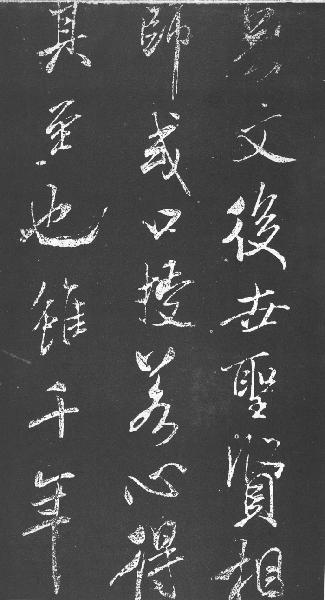 文後世聖賢相
師或口授若心得
其至也雖千年